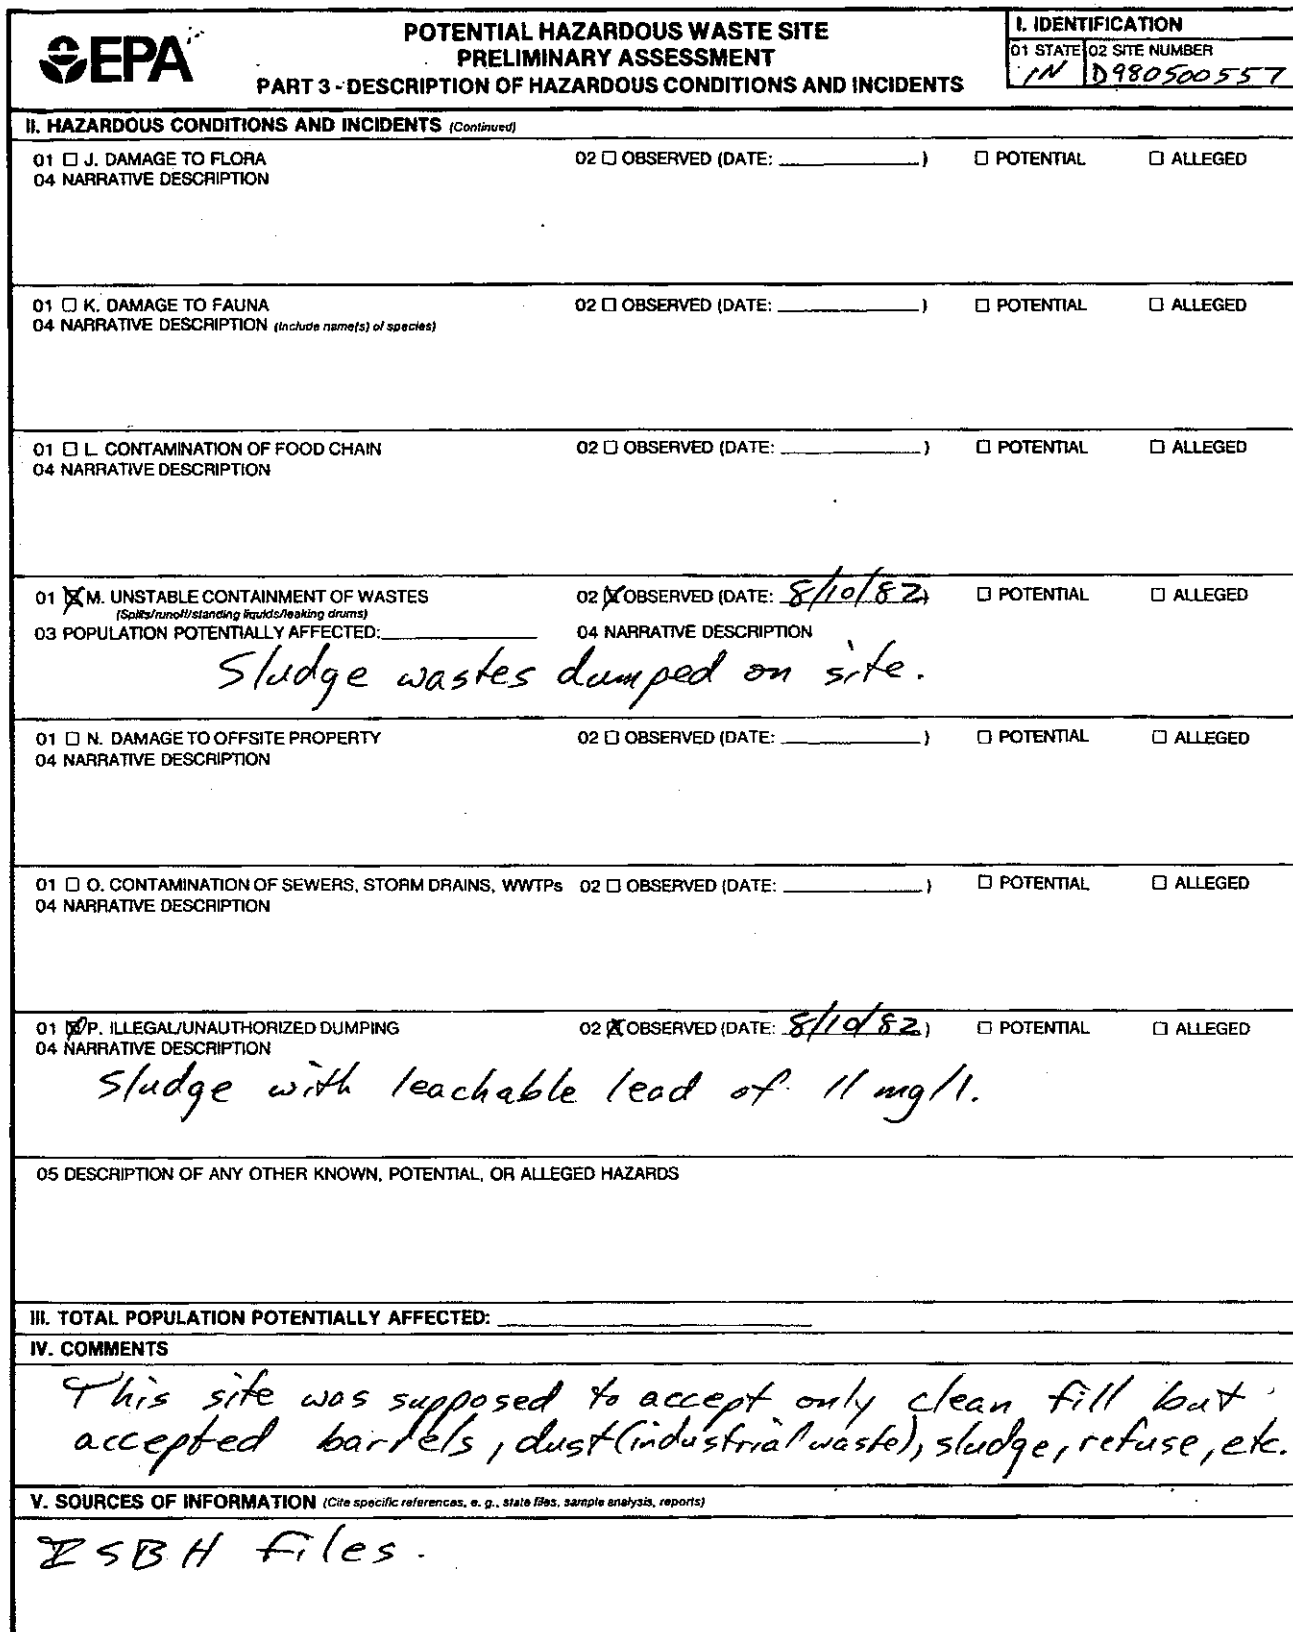 EPA
POTENTIAL HAZARDOUS WASTE SITE
PRELIMINARY ASSESSMENT
PART 3 - DESCRIPTION OF HAZARDOUS CONDITIONS AND INCIDENTS
I. IDENTIFICATION
01 STATE 02 SITE NUMBER
IN D980500557
II. HAZARDOUS CONDITIONS AND INCIDENTS (Continued)
01 ☐ J. DAMAGE TO FLORA 02 ☐ OBSERVED (DATE: ____________) ☐ POTENTIAL ☐ ALLEGED
04 NARRATIVE DESCRIPTION
01 ☐ K. DAMAGE TO FAUNA 02 ☐ OBSERVED (DATE: ____________) ☐ POTENTIAL ☐ ALLEGED
04 NARRATIVE DESCRIPTION (Include name(s) of species)
01 ☐ L. CONTAMINATION OF FOOD CHAIN 02 ☐ OBSERVED (DATE: ____________) ☐ POTENTIAL ☐ ALLEGED
04 NARRATIVE DESCRIPTION
01 ☒ M. UNSTABLE CONTAINMENT OF WASTES 02 ☒ OBSERVED (DATE: 8/10/82) ☐ POTENTIAL ☐ ALLEGED
(Spills/runoff/standing liquids/leaking drums)
03 POPULATION POTENTIALLY AFFECTED: ____________ 04 NARRATIVE DESCRIPTION
Sludge wastes dumped on site.
01 ☐ N. DAMAGE TO OFFSITE PROPERTY 02 ☐ OBSERVED (DATE: ____________) ☐ POTENTIAL ☐ ALLEGED
04 NARRATIVE DESCRIPTION
01 ☐ O. CONTAMINATION OF SEWERS, STORM DRAINS, WWTPs 02 ☐ OBSERVED (DATE: ____________) ☐ POTENTIAL ☐ ALLEGED
04 NARRATIVE DESCRIPTION
01 ☒ P. ILLEGAL/UNAUTHORIZED DUMPING 02 ☒ OBSERVED (DATE: 8/10/82) ☐ POTENTIAL ☐ ALLEGED
04 NARRATIVE DESCRIPTION
Sludge with leachable lead of 11 mg/l.
05 DESCRIPTION OF ANY OTHER KNOWN, POTENTIAL, OR ALLEGED HAZARDS
III. TOTAL POPULATION POTENTIALLY AFFECTED: ____________
IV. COMMENTS
This site was supposed to accept only clean fill but
accepted barrels, dust (industrial waste), sludge, refuse, etc.
V. SOURCES OF INFORMATION (Cite specific references, e. g., state files, sample analysis, reports)
ISBH files.